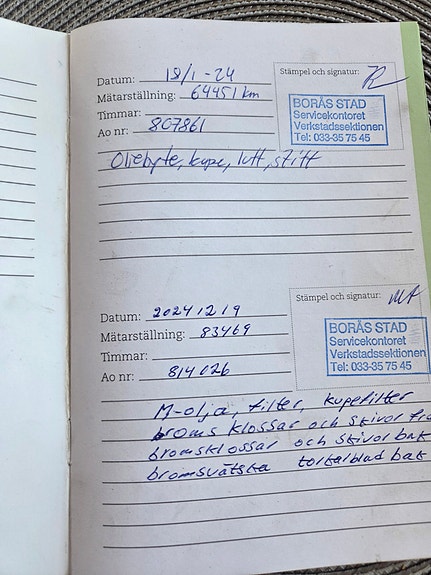 Datum: 18/1-24
Mätarställning: 64451 km
Timmar:
Ao nr: 807861
Stämpel och signatur:
BORÅS STAD
Servicekontoret
Verkstadssektionen
Tel: 033-35 75 45
Oljebyte, kupe, luft, stift
Datum: 20241219
Mätarställning: 83469
Timmar:
Ao nr: 814026
Stämpel och signatur:
BORÅS STAD
Servicekontoret
Verkstadssektionen
Tel: 033-35 75 45
M-olja, filter, kupefilter
broms klossar och skivor
bromsklossar och skivor bak
bromsvätska torkarblad bak